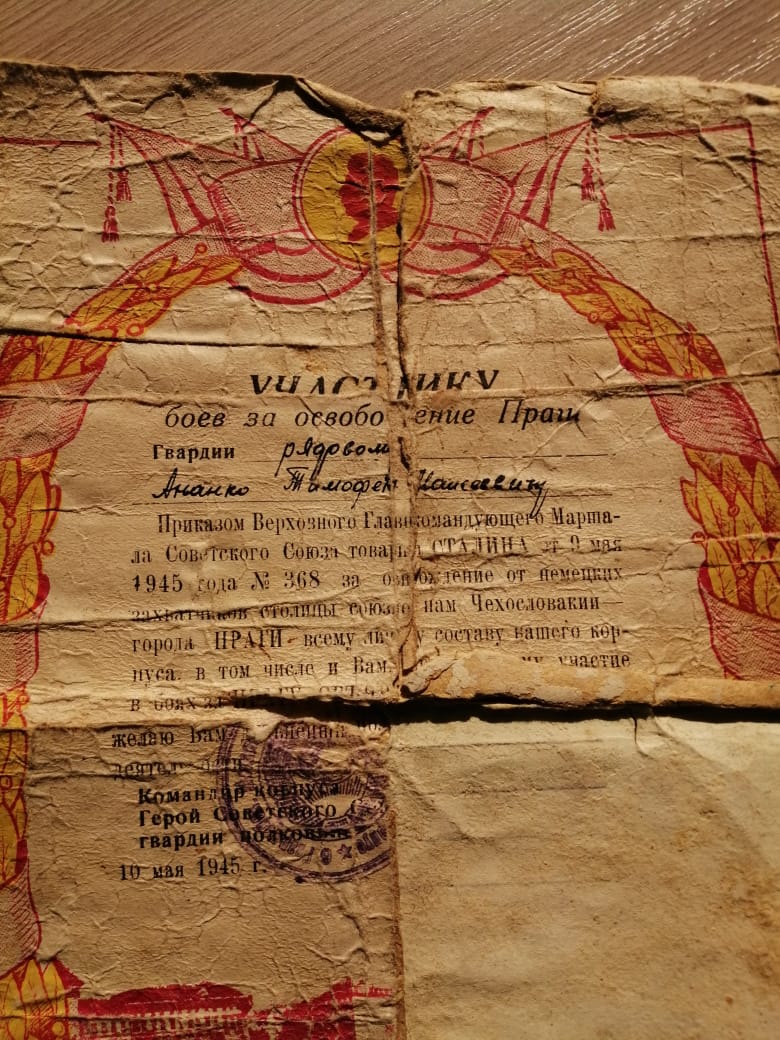 УЧАСТНИКУ
боев за освобо ение Праги
Гвардии рядовом
Ананко Тимофею Моисеевичу
Приказом Верховного Главнокомандующего Марша-
ла Советского Союза товарищ СТАЛИНА от 9 мая
1945 года № 368 за ос бождение от немецких
захватчиков столицы союзно нам Чехословакии
города ПРАГИ - всему лич у составу нашего кор-
пуса, в том числе и Вам, му участие
в боях за
желаю Вам
Командир корпуса
Герой Советского С
гвардии полковник
10 мая 1945 г.